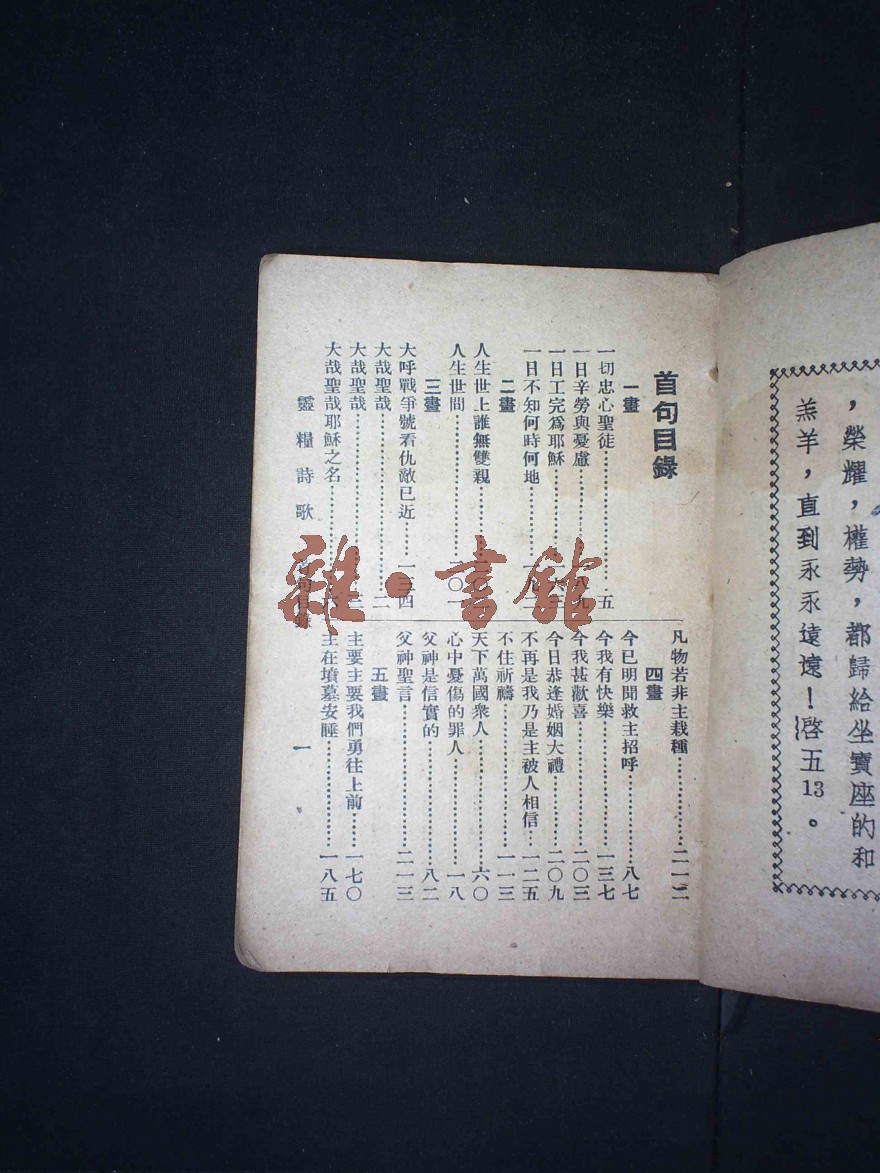 ，榮耀，權勢，都歸給坐寶座的和
羔羊，直到永永遠遠！啓五13。
首句目錄
一畫
一切忠心聖徒 五
一日辛勞與憂慮 八九
一日工完爲耶穌
一日不知何時何地
二畫
人生世上誰無雙親
人生世間 一〇一
三畫
大呼戰爭號看仇敵已近 一三四
大哉聖哉 二
大哉聖哉
大哉聖哉耶穌之名
凡物若非主栽種 二一二
四畫
今已明聞救主招呼 八七
今我有快樂 一三七
今我甚歡喜 二〇三
今日恭逢婚姻大禮 二〇九
不再是我乃是主被人相信 一二五
不住祈禱 一一三
天下萬國衆人 六〇
心中憂傷的罪人 一八
父神是信實的 八二
父神聖言 二一三
五畫
主要主要我們勇往上前 一七〇
主在墳墓安睡 一八五
靈糧詩歌 句目錄 一
雜·書館